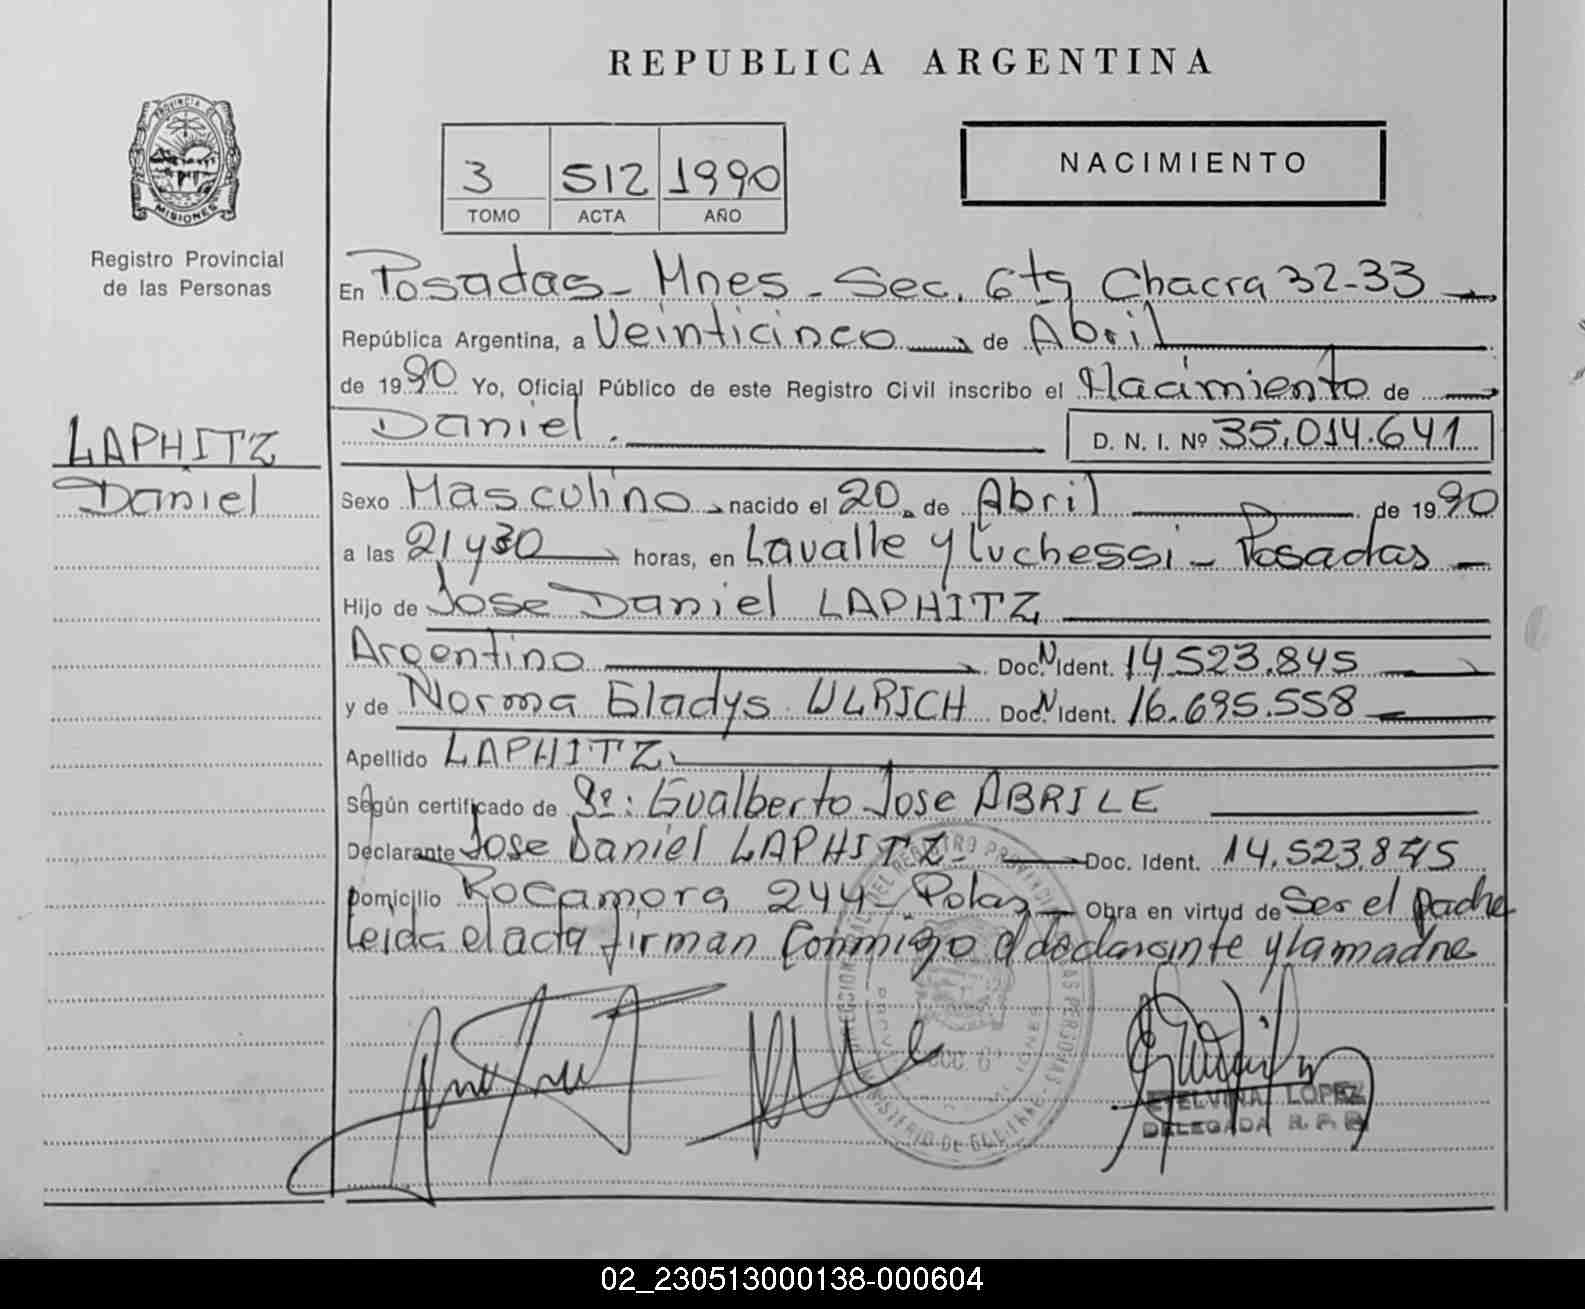 REPUBLICA ARGENTINA
PROVINCIA DE
MISIONES
Registro Provincial
de las Personas
3 512 1990
TOMO ACTA AÑO
NACIMIENTO
En Posadas - Mnes - Sec. 6ta Chacra 32-33
República Argentina, a Veinticinco de Abril
de 1990 Yo, Oficial Público de este Registro Civil inscribo el Nacimiento de
Daniel. D. N. I. Nº 35.014.641
LAPHITZ
Daniel
Sexo Masculino nacido el 20 de Abril de 1990
a las 21 y 30 horas, en Lavalle y Luchessi - Posadas
Hijo de Jose Daniel LAPHITZ
Argentino Doc. N Ident. 14.523.845
y de Norma Gladys ULRICH Doc. N Ident. 16.695.558
Apellido LAPHITZ
Según certificado de Gualberto Jose ABRILE
Declarante Jose Daniel LAPHITZ - Doc. Ident. 14.523.845
Domicilio Rocamora 244 - Obra en virtud de Ser el padre
Leida el acta firman Conmigo el declarante y la madre
ETELVINA LOPEZ
DELEGADA R. P. P.
02_230513000138-000604